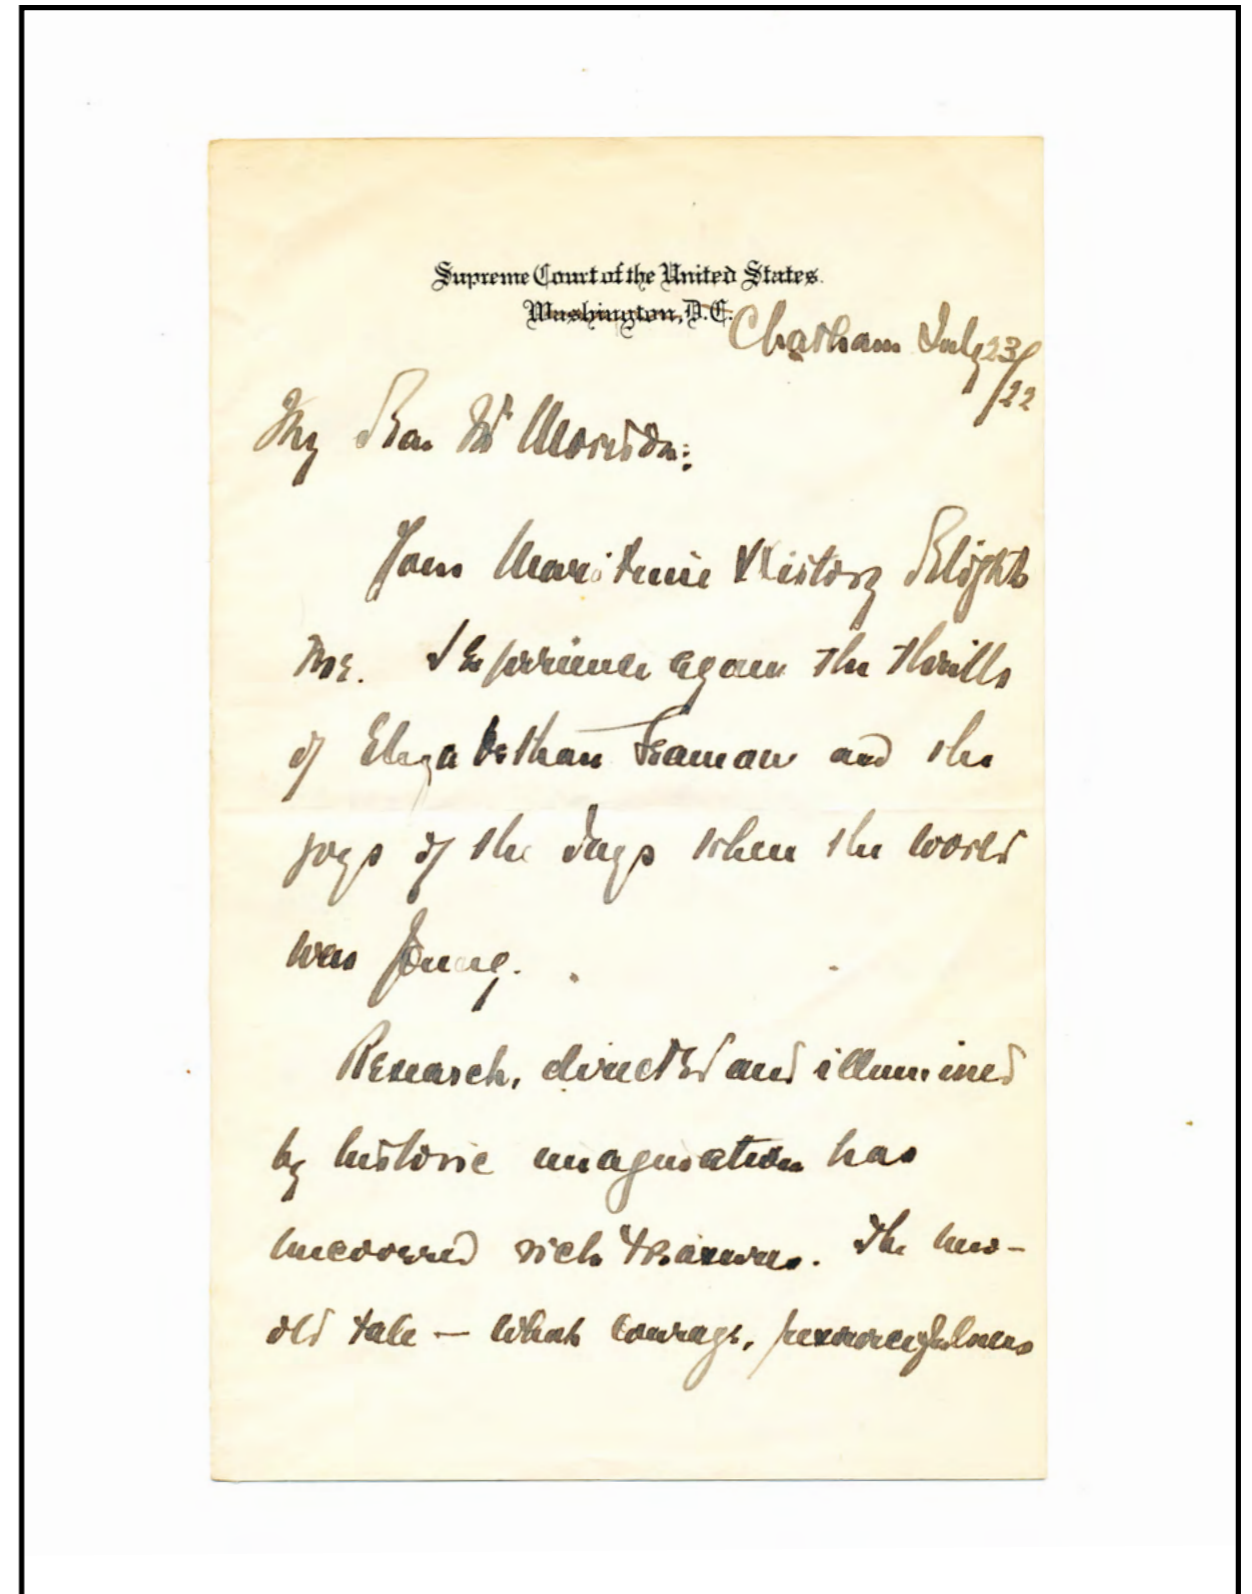 Supreme Court of the United States.
Washington, D.C.
Chatham July 23/22
My Dear Mr Morison:
Your Maritime History delights
me. I experience again the thrills
of Elizabethan Seaman and the
joys of the days when the world
was young.
Research, directed and illumined
by historic imagination has
uncovered rich treasures. The new-
old tale — what courage, resourcefulness